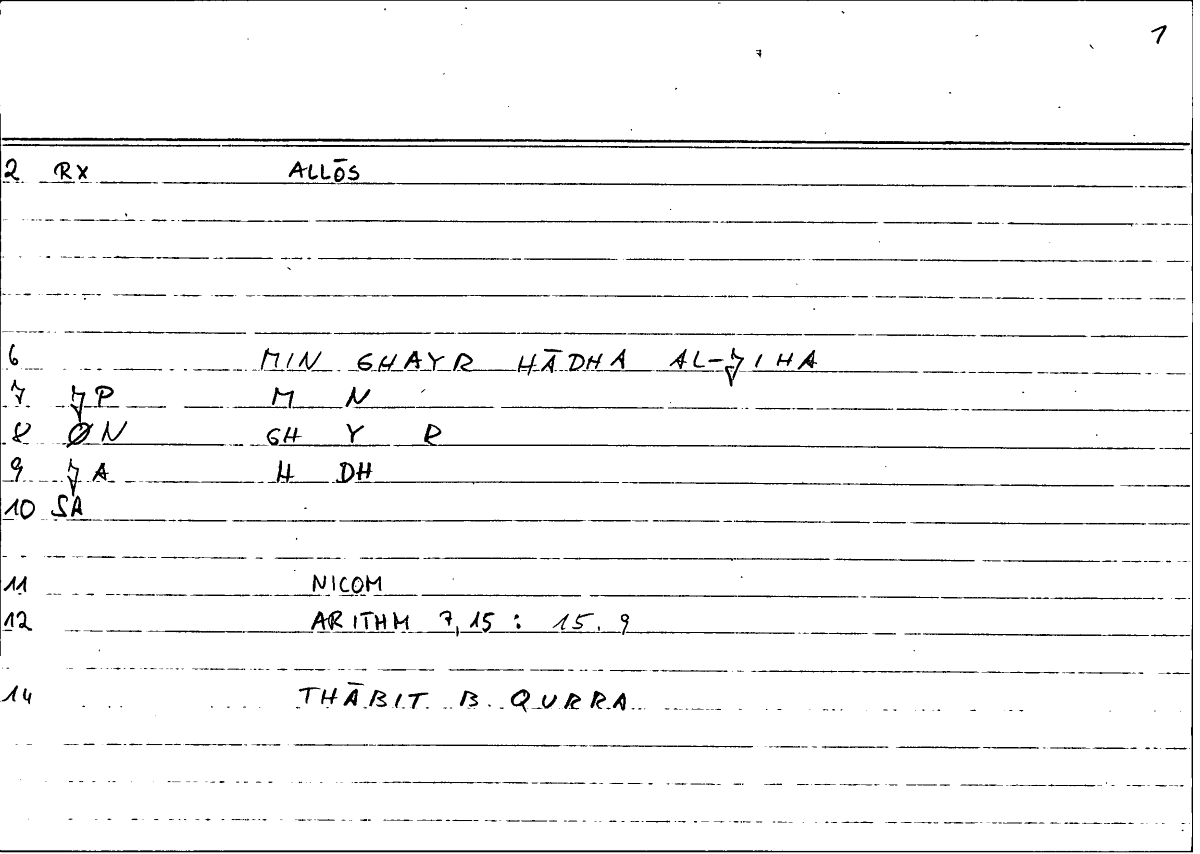 1
2 RX ALLŌS
6 MIN GHAYR HĀDHA AL-JIHA
7 JP M N
8 ØN GH Y R
9 JA H DH
10 SA
11 NICOM
12 ARITHM 7,15 : 15.9
14 THĀBIT B. QURRA